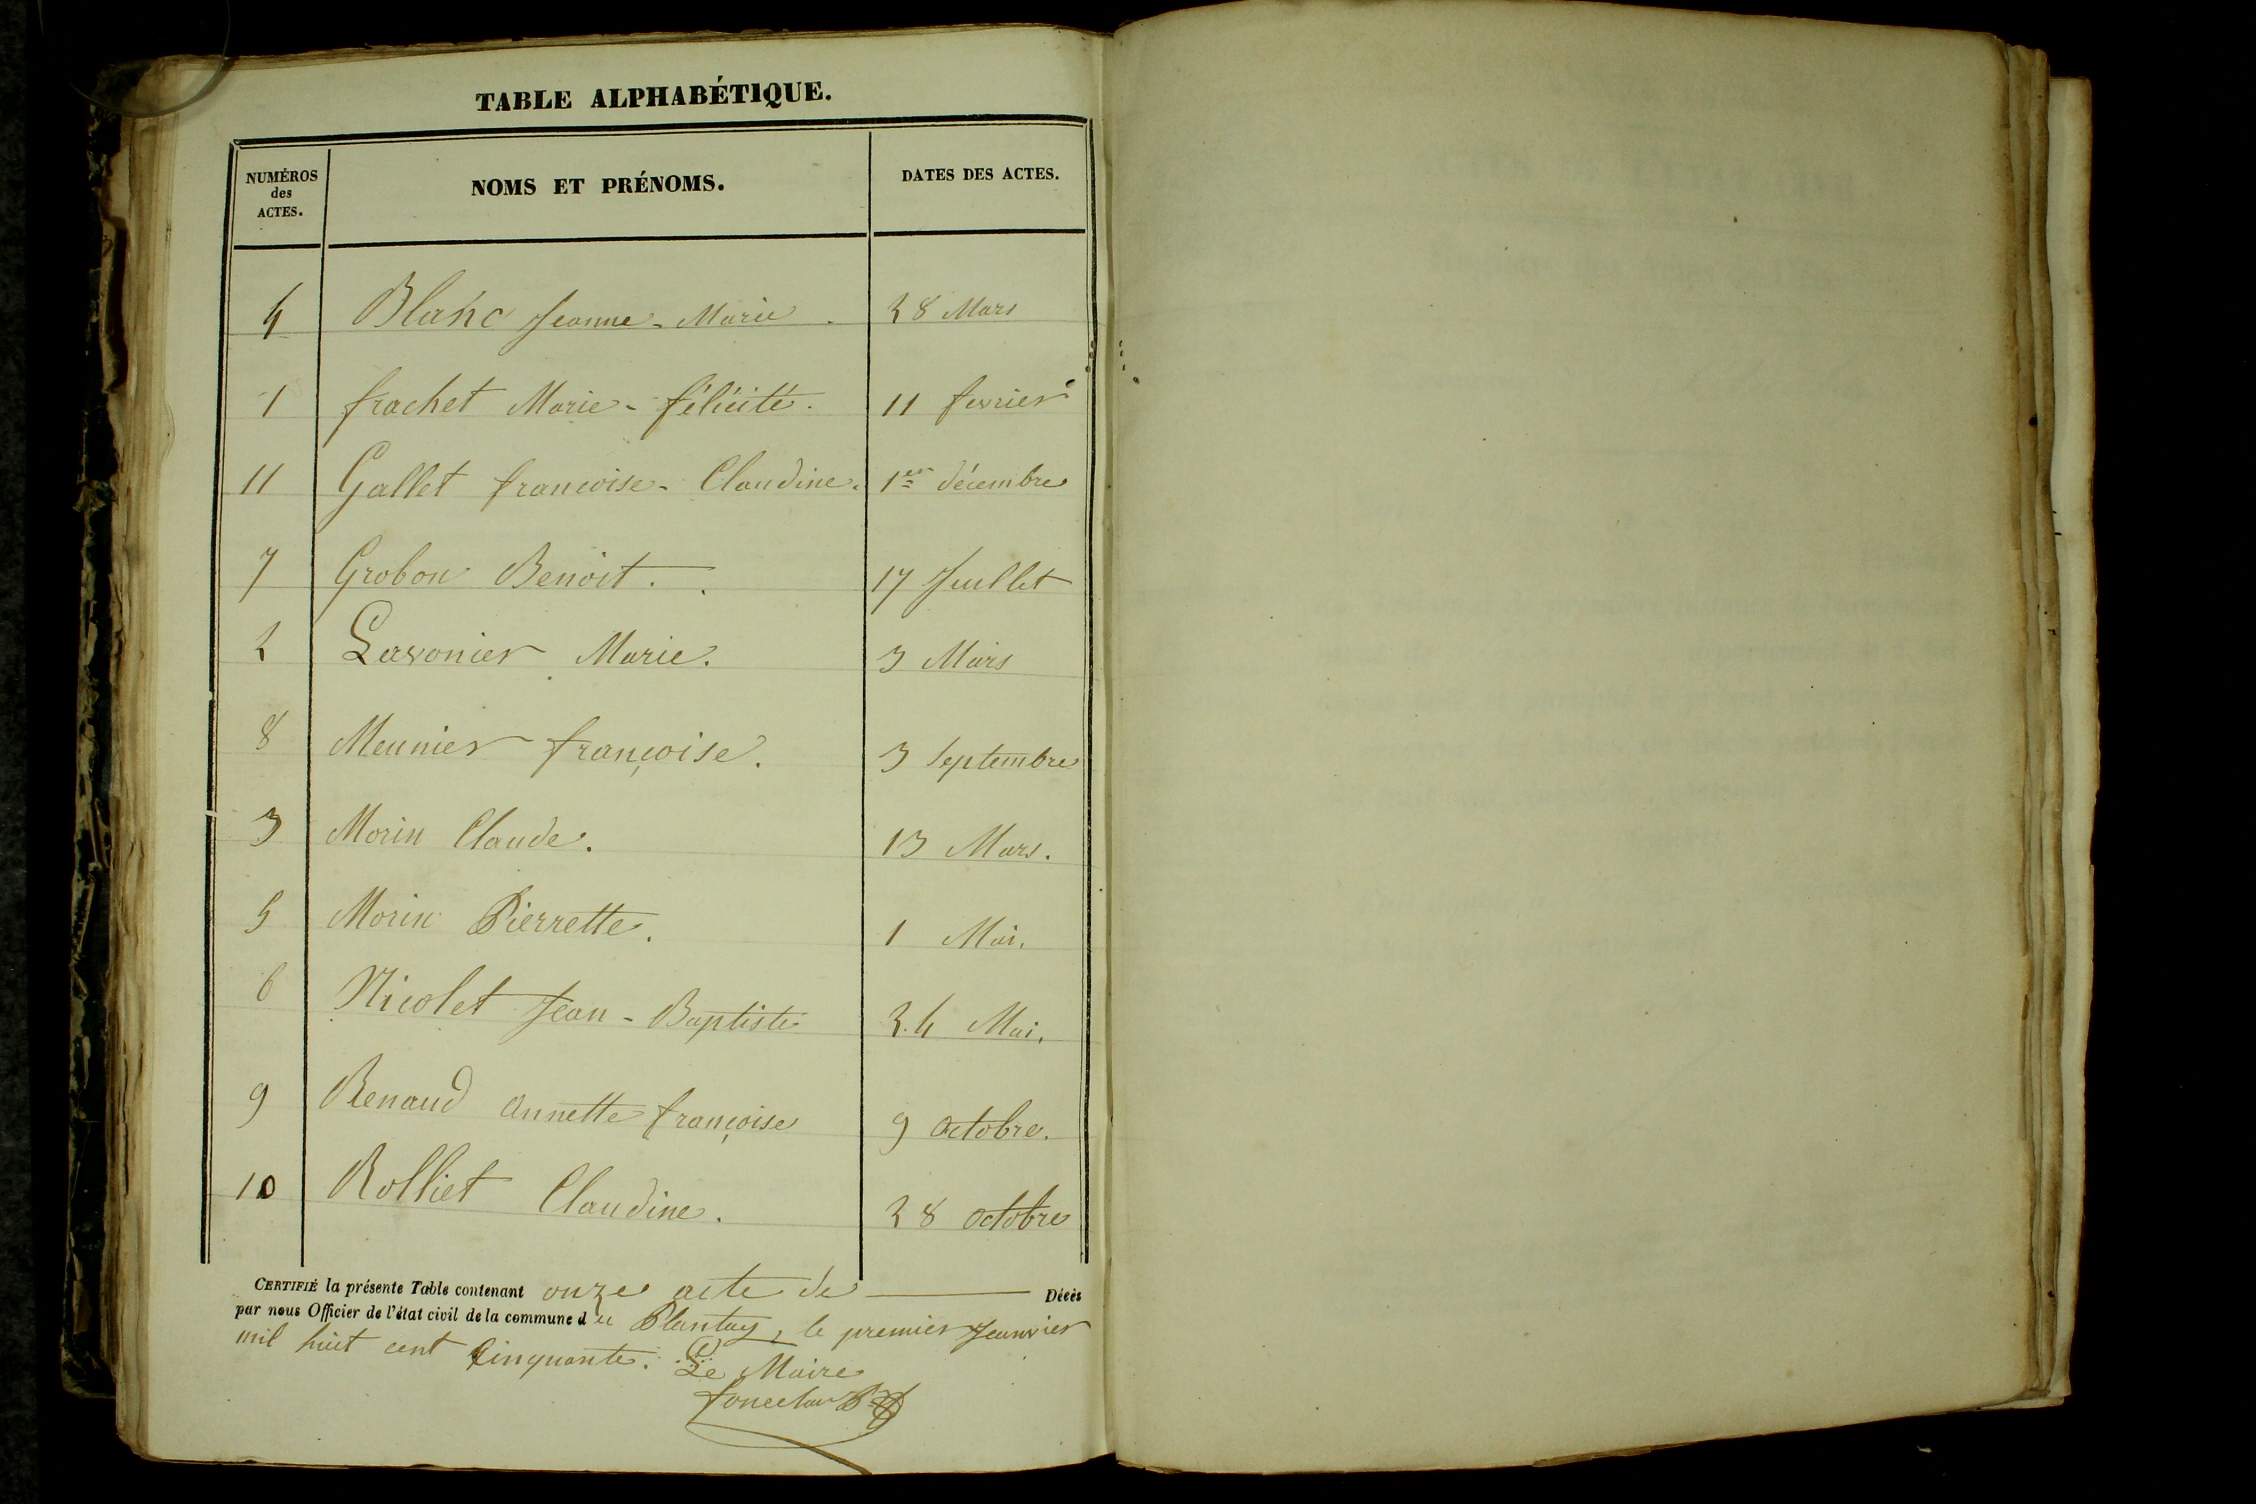 TABLE ALPHABÉTIQUE.
NUMÉROS des ACTES. NOMS ET PRÉNOMS. DATES DES ACTES.
4 Blanc Jeanne-Marie. 28 Mars
1 frachet Marie-félicité. 11 fevrier
11 Gallet francoise-Claudine. 1er décembre
7 Grobon Benoit. 17 Juillet
2 Lavonier Marie. 3 Mars
8 Meunier françoise. 3 Septembre
3 Morin Claude. 13 Mars.
5 Morin Pierrette. 1 Mai.
6 Nicolet Jean-Baptiste 24 Mai.
9 Renaud annette françoise 9 octobre.
10 Rolliet Claudine. 28 octobre
CERTIFIÉ la présente Table contenant onze acte de Décès
par nous Officier de l'état civil de la commune du Plantay, le premier Janvier
mil huit cent Cinquante.
Le Maire